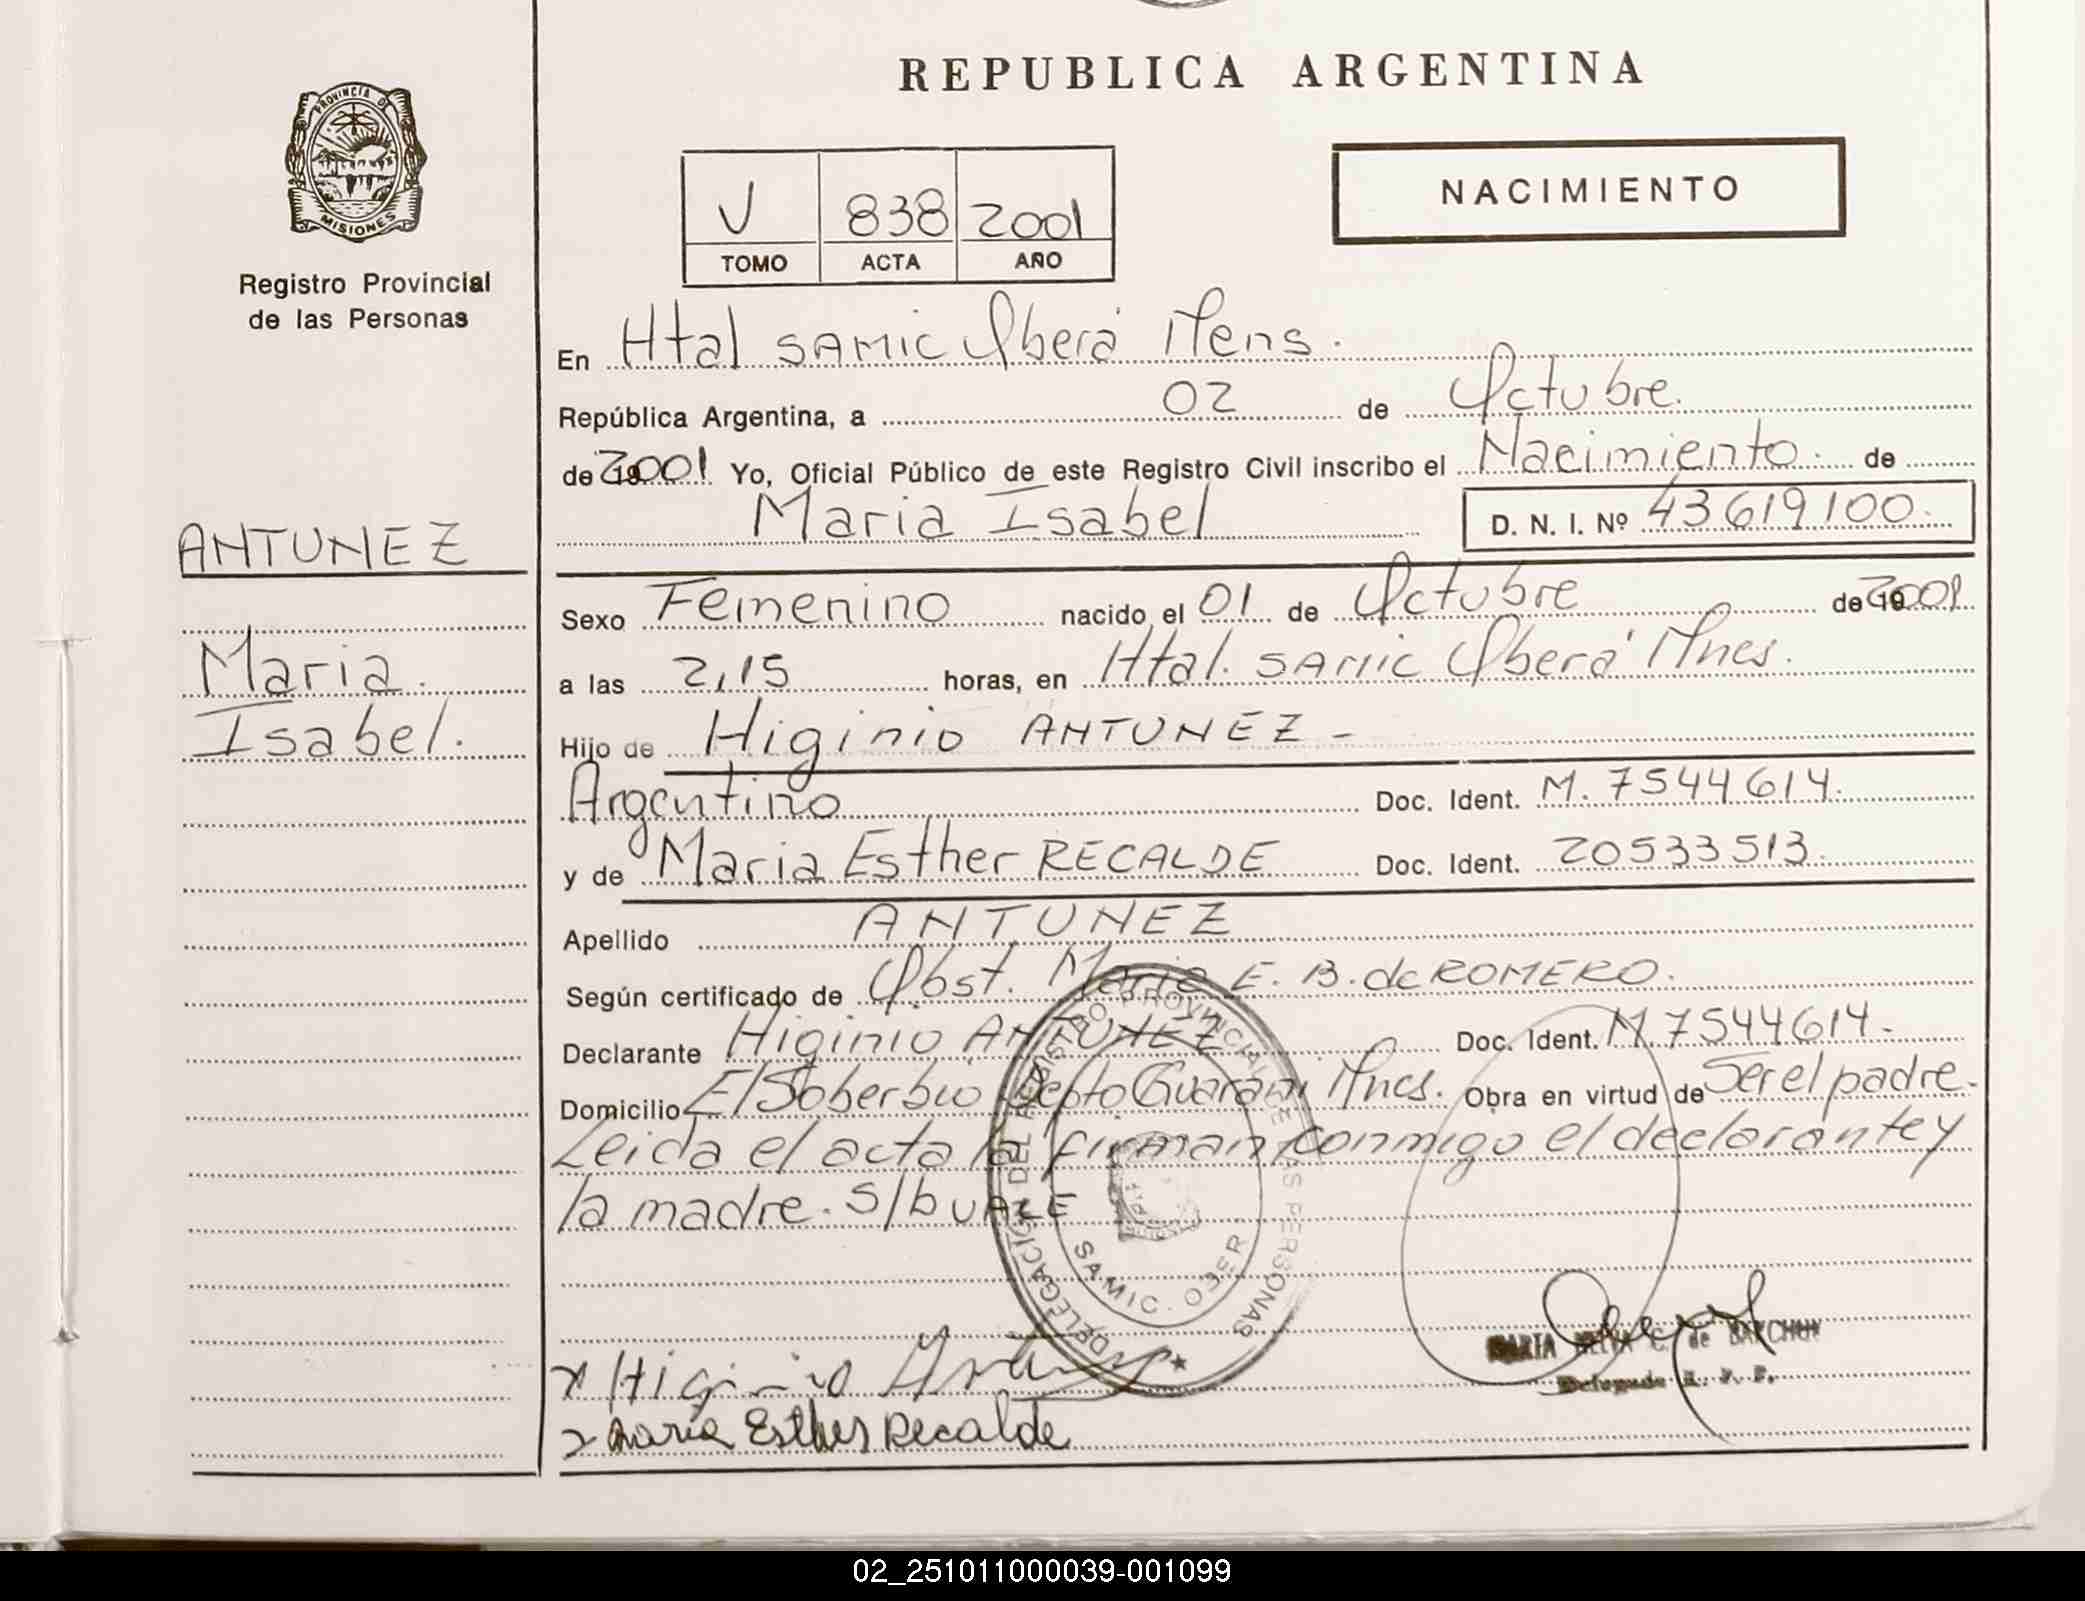 REPUBLICA ARGENTINA
PROVINCIA DE
MISIONES
Registro Provincial
de las Personas
NACIMIENTO
V 838 2001
TOMO ACTA AÑO
En Htal SAMIC Oberá Mens.
República Argentina, a 02 de Octubre.
de 2001 Yo, Oficial Público de este Registro Civil inscribo el Nacimiento. de
Maria Isabel D. N. I. Nº 43619100.
ANTUNEZ
Maria.
Isabel.
Sexo Femenino nacido el 01 de Octubre de 2001
a las 2,15 horas, en Htal. SAMIC Oberá Mnes.
Hijo de Higinio ANTUNEZ -
Argentino Doc. Ident. M. 7544614.
y de Maria Esther RECALDE Doc. Ident. 20533513.
Apellido ANTUNEZ
Según certificado de Obst. Maria E. B. de ROMERO.
Declarante Higinio ANTUNEZ Doc. Ident. M.7544614.
Domicilio El Soberbio Depto Guarani Mnes. Obra en virtud de Ser el padre.
Leida el acta la firman conmigo el declarante y
la madre. S/b VALE
DELEGACION DEL REGISTRO PROVINCIAL DE LAS PERSONAS
SAMIC. OBER
Higinio Antunez
Maria Esther Recalde
MARIA C. de
Delegada R. P. P.
02_251011000039-001099